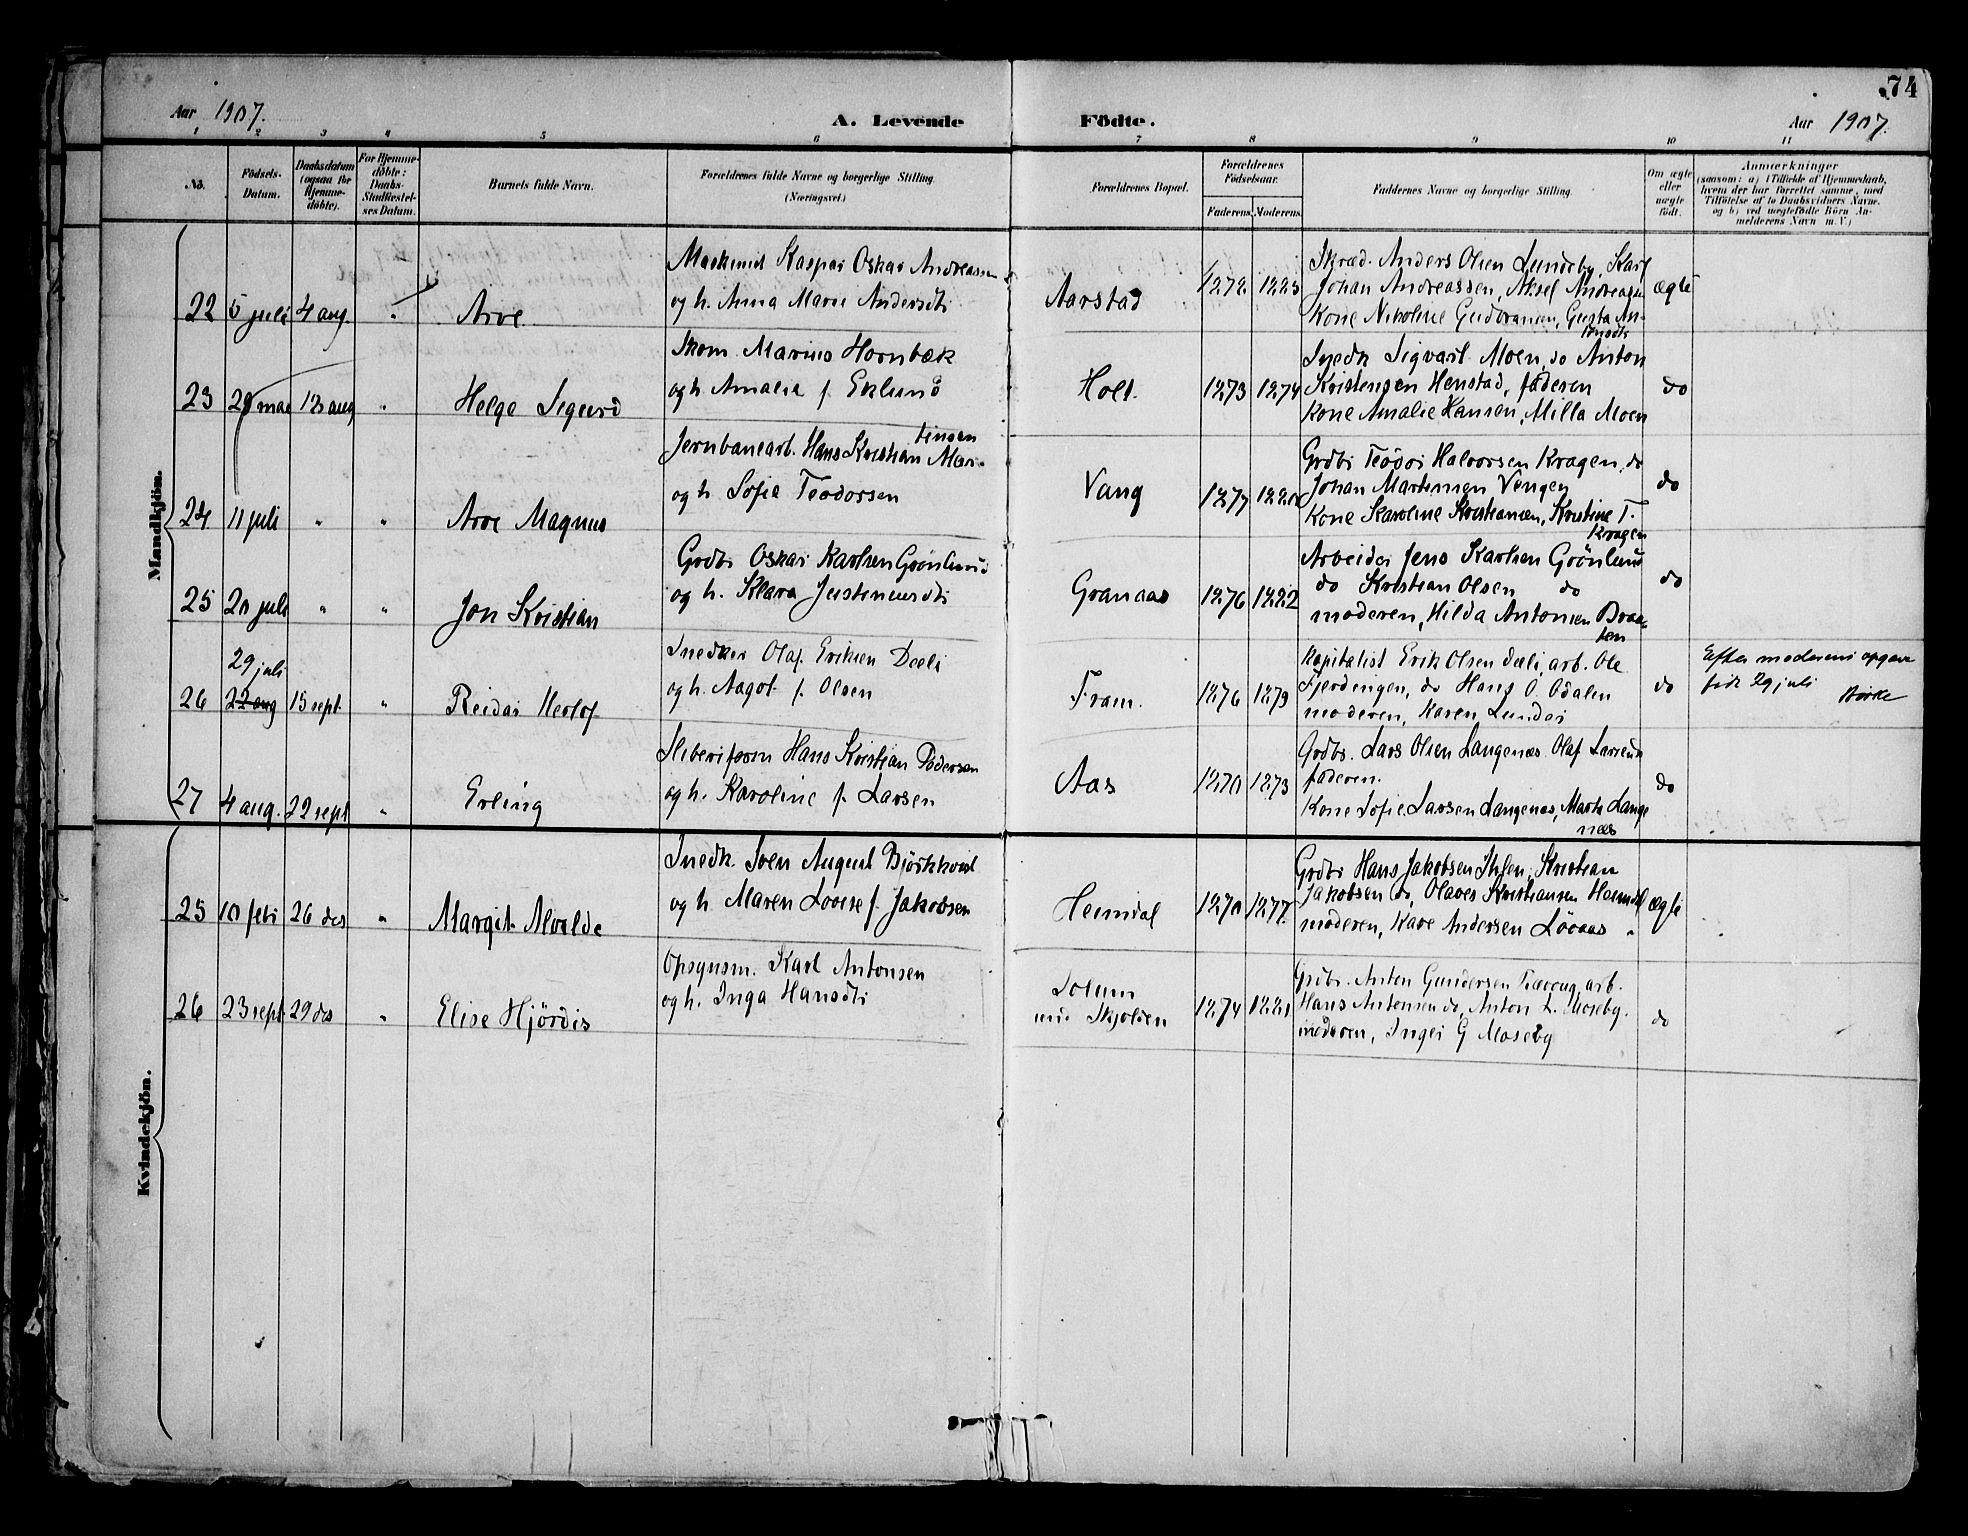 74
Aar 1907.
A. Levende Födte.
Aar 1907.
1 2 3 4 5 6 7 8 9 10 11
No.
Födsels-
Datum.
Daabsdatum
(ogsaa for
Hjemme-
döbte).
For Hjemme-
döbte:
Daabs-
Stadfæstel-
ses Datum.
Barnets fulde Navn.
Forældrenes fulde Navne og borgerlige Stilling.
(Næringsvei.)
Forældrenes Bopæl.
Forældrenes
Fødselsaar.
Faderens. Moderens.
Faddernes Navne og borgerlige Stilling.
Om ægte
eller
uægte
født.
Anmærkninger
(saasom: a) i Tilfælde af Hjemmedaab,
hvem der har forrettet samme, med
Tilføielse af to Daabsvidners Navne.
og b) ved uægtefødte Börn An-
melderens Navn m.V.)
Mandkjön.
22 5 juli 4 aug. " Arve
Maskinist Kaspar Oskar Andreassen
og h. Anna Marie Andersdtr
Aarstad 1872 1883
Skræd. Anders Olsen Lundeby, Karl
Johan Andreassen, Aksel Andreassen
Kone Nikoline Gudbransen, Gusta An-
ægte
23 28 mai 18 aug " Helge Sigurd
Skom. Marius Hornbæk
og h. Amalie f. Eklund
Holt. 1873 1874
Snedk Sigvart Moen, do Anton
Kristensen Henstad, faderen
Kone Amalie Hansen, Milla Moen
do
24 11 juli " " Arve Magnus
Jernbanearb. Hans Kristian Mar-
tinsen
og h. Sofie Teodorsen
Vang 1877 1880
Grdbr Teodor Halvorsen Kragen, do
Johan Martinsen Vengen
Kone Karoline Kristiansen, Kristine T.
Kragen
do
25 20 juli " " Jon Kristian
Grdbr Oskar Karlsen Grønlund
og h. Klara Justinusdtr
Granaas 1876 1882
Arbeider Jens Karlsen Grönlund
do Kristian Olsen do
moderen, Hilda Antonsen Braa-
ten
do
29 juli
26 22 aug 15 sept. " Reidar Herlof
Snedker Olaf Eriksen Dæli
og h. Aagot f. Olsen
Fram. 1876 1879
Kapitalist Erik Olsen Dæli, arb. Ole
Fjerdingen, do Hans O. Odalen
moderen, Karen Lunder
do
Efter moderens opgave
født 29 juli
Birke
27 4 aug. 22 sept " Erling
Sliberiform Hans Kristian Pedersen
og h. Karoline f. Larsen
Aas 1870 1873
Grdbr. Lars Olsen Langenæs, Olaf Larsen
faderen.
Kone Sofie Larsen Langenæs, Marta Lange
næs
do
Kvindekjön.
25 10 febr 26 des " Margit Alvilde
Snedk. Sven August Björkkvist
og h. Maren Lovise f. Jakobsen
Heimdal 1870 1877.
Grdbr Hans Jakobsen Ihlen, Kristian
Jakobsen do, Olaves Kristiansen Heimdal
moderen, Kare Andersen Lövaas "
ægte
26 23 sept 29 des " Elise Hjördis
Opsynsm. Karl Antonsen
og h. Inga Hansdtr
Solum
Skjolden 1874 1881
Grdbr. Anton Gundersen arb.
Hans Antonsen do, Anton L. Moseby.
moderen, Inger G Moseby
do